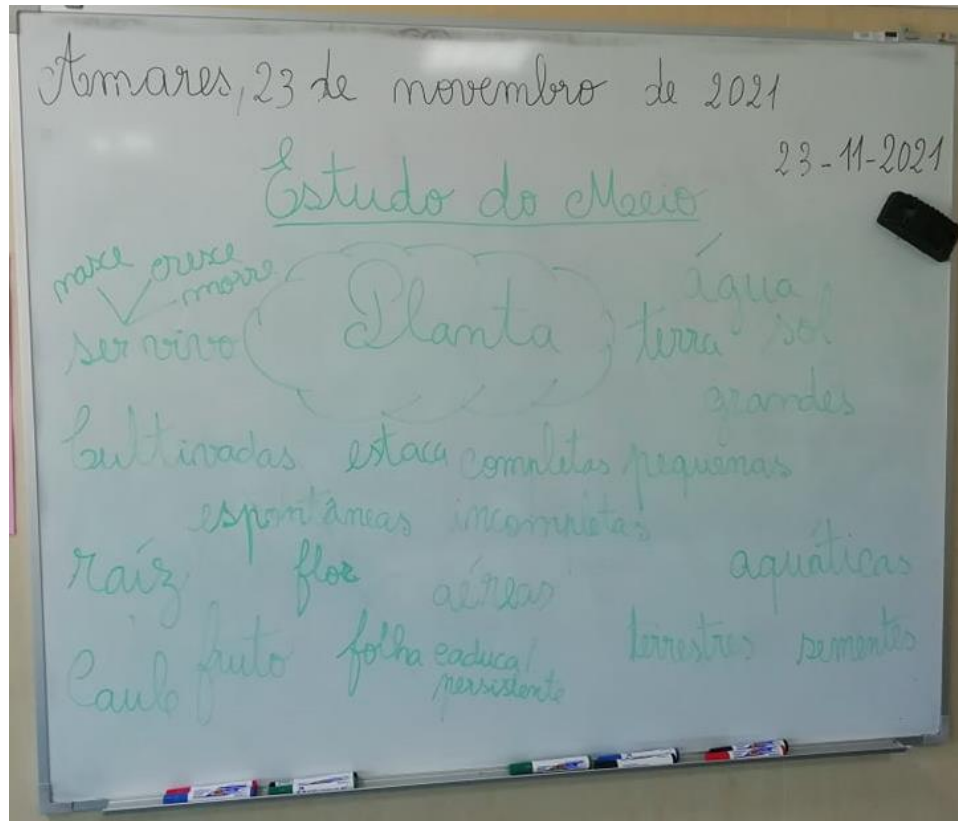 Amares, 23 de novembro de 2021
23-11-2021
Estudo do Meio
nasce cresce
morre
água
ser vivo Planta terra sol
grandes
Cultivadas estaca completas pequenas
espontâneas incompletas
raíz flor aéreas aquáticas
Caule fruto folha caduca/ terrestres sementes
persistente